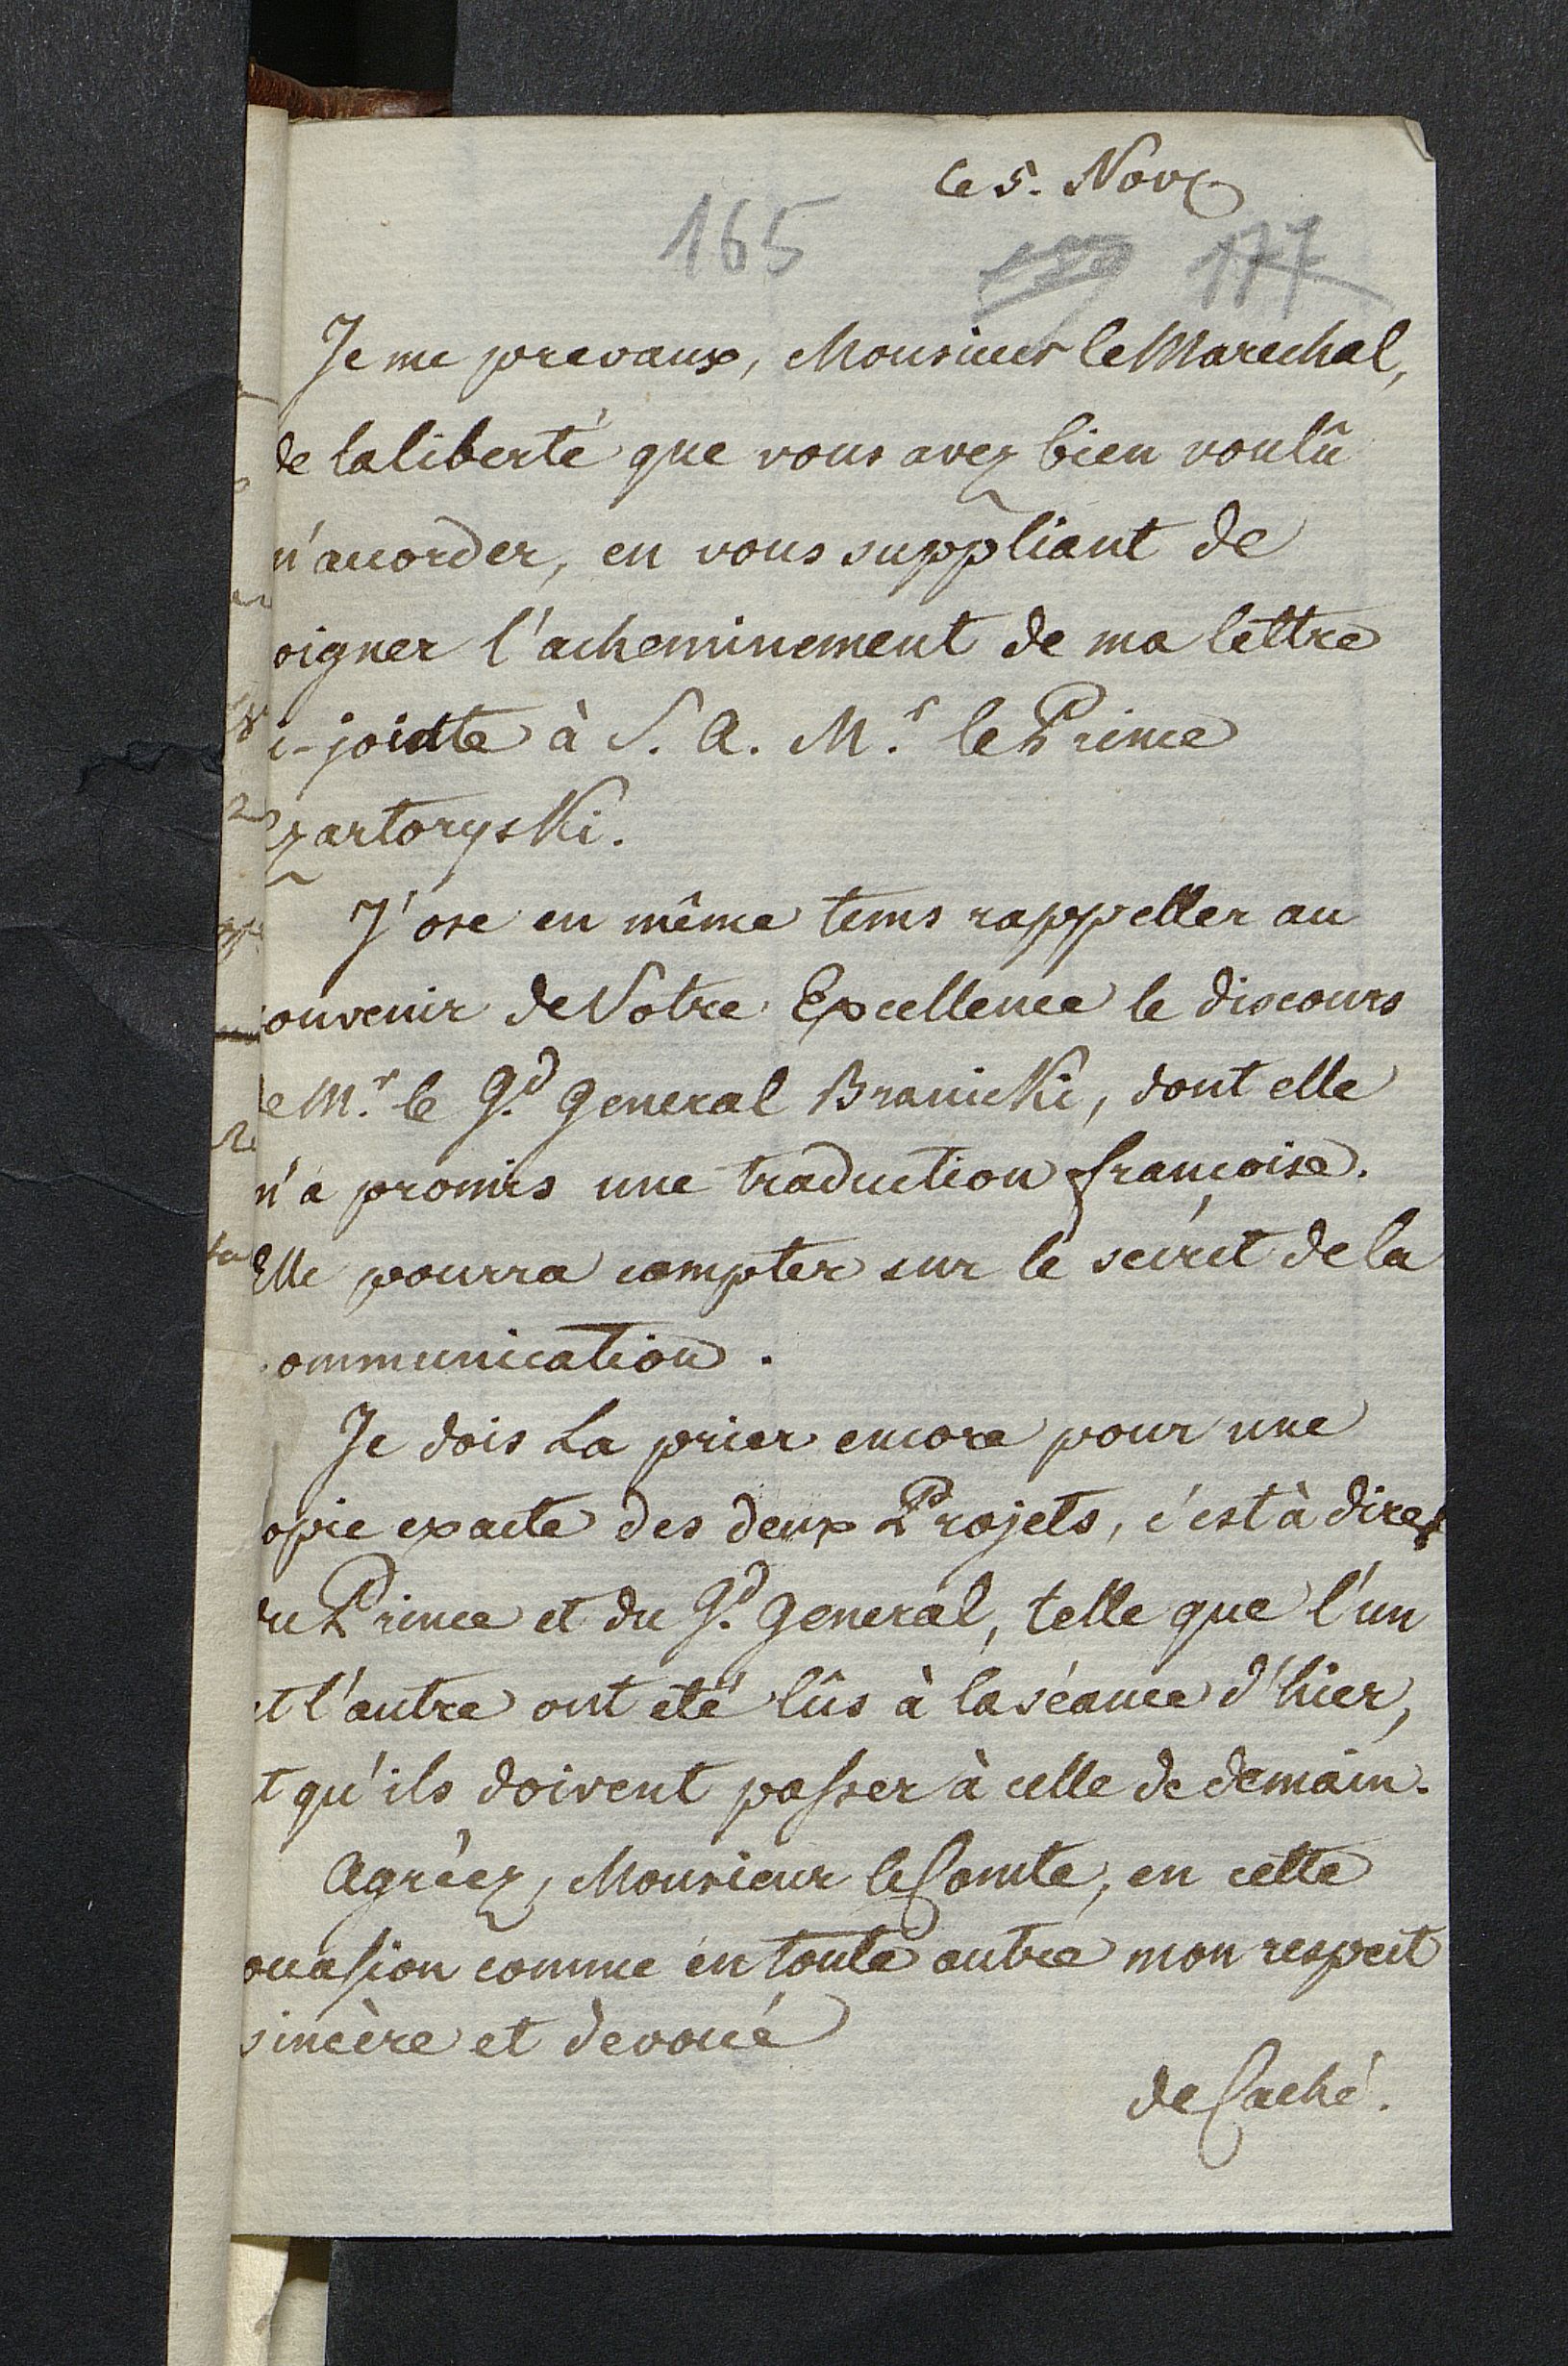 Ce 5. Nov
165 177
Je me prevaux, Monsieur le Marechal,
de la liberté que vous avez bien voulû
m'accorder, en vous suppliant de
oigner l'acheminement de ma lettre
i-jointe à S. A. Mr. le Prince
zartoryski.
J'ose en même tems rappeller au
ouvenir de Votre Excellence le discours
de Mr. le Gd. General Branicki, dont elle
m'a promis une traduction françoise.
Elle pourra compter sur le sécret de la
ommunication.
Je dois La prier encore pour une
opie exacte des deux Projets, c'est à dire
du Prince et du Gd. General, telle que l'un
et l'autre ont eté lûs à la séance d'hier,
t qu'ils doivent passer à celle de demain.
Agréez, Monsieur le Comte, en cette
occasion comme en toute autre mon respect
sincère et devoué
de Caché.